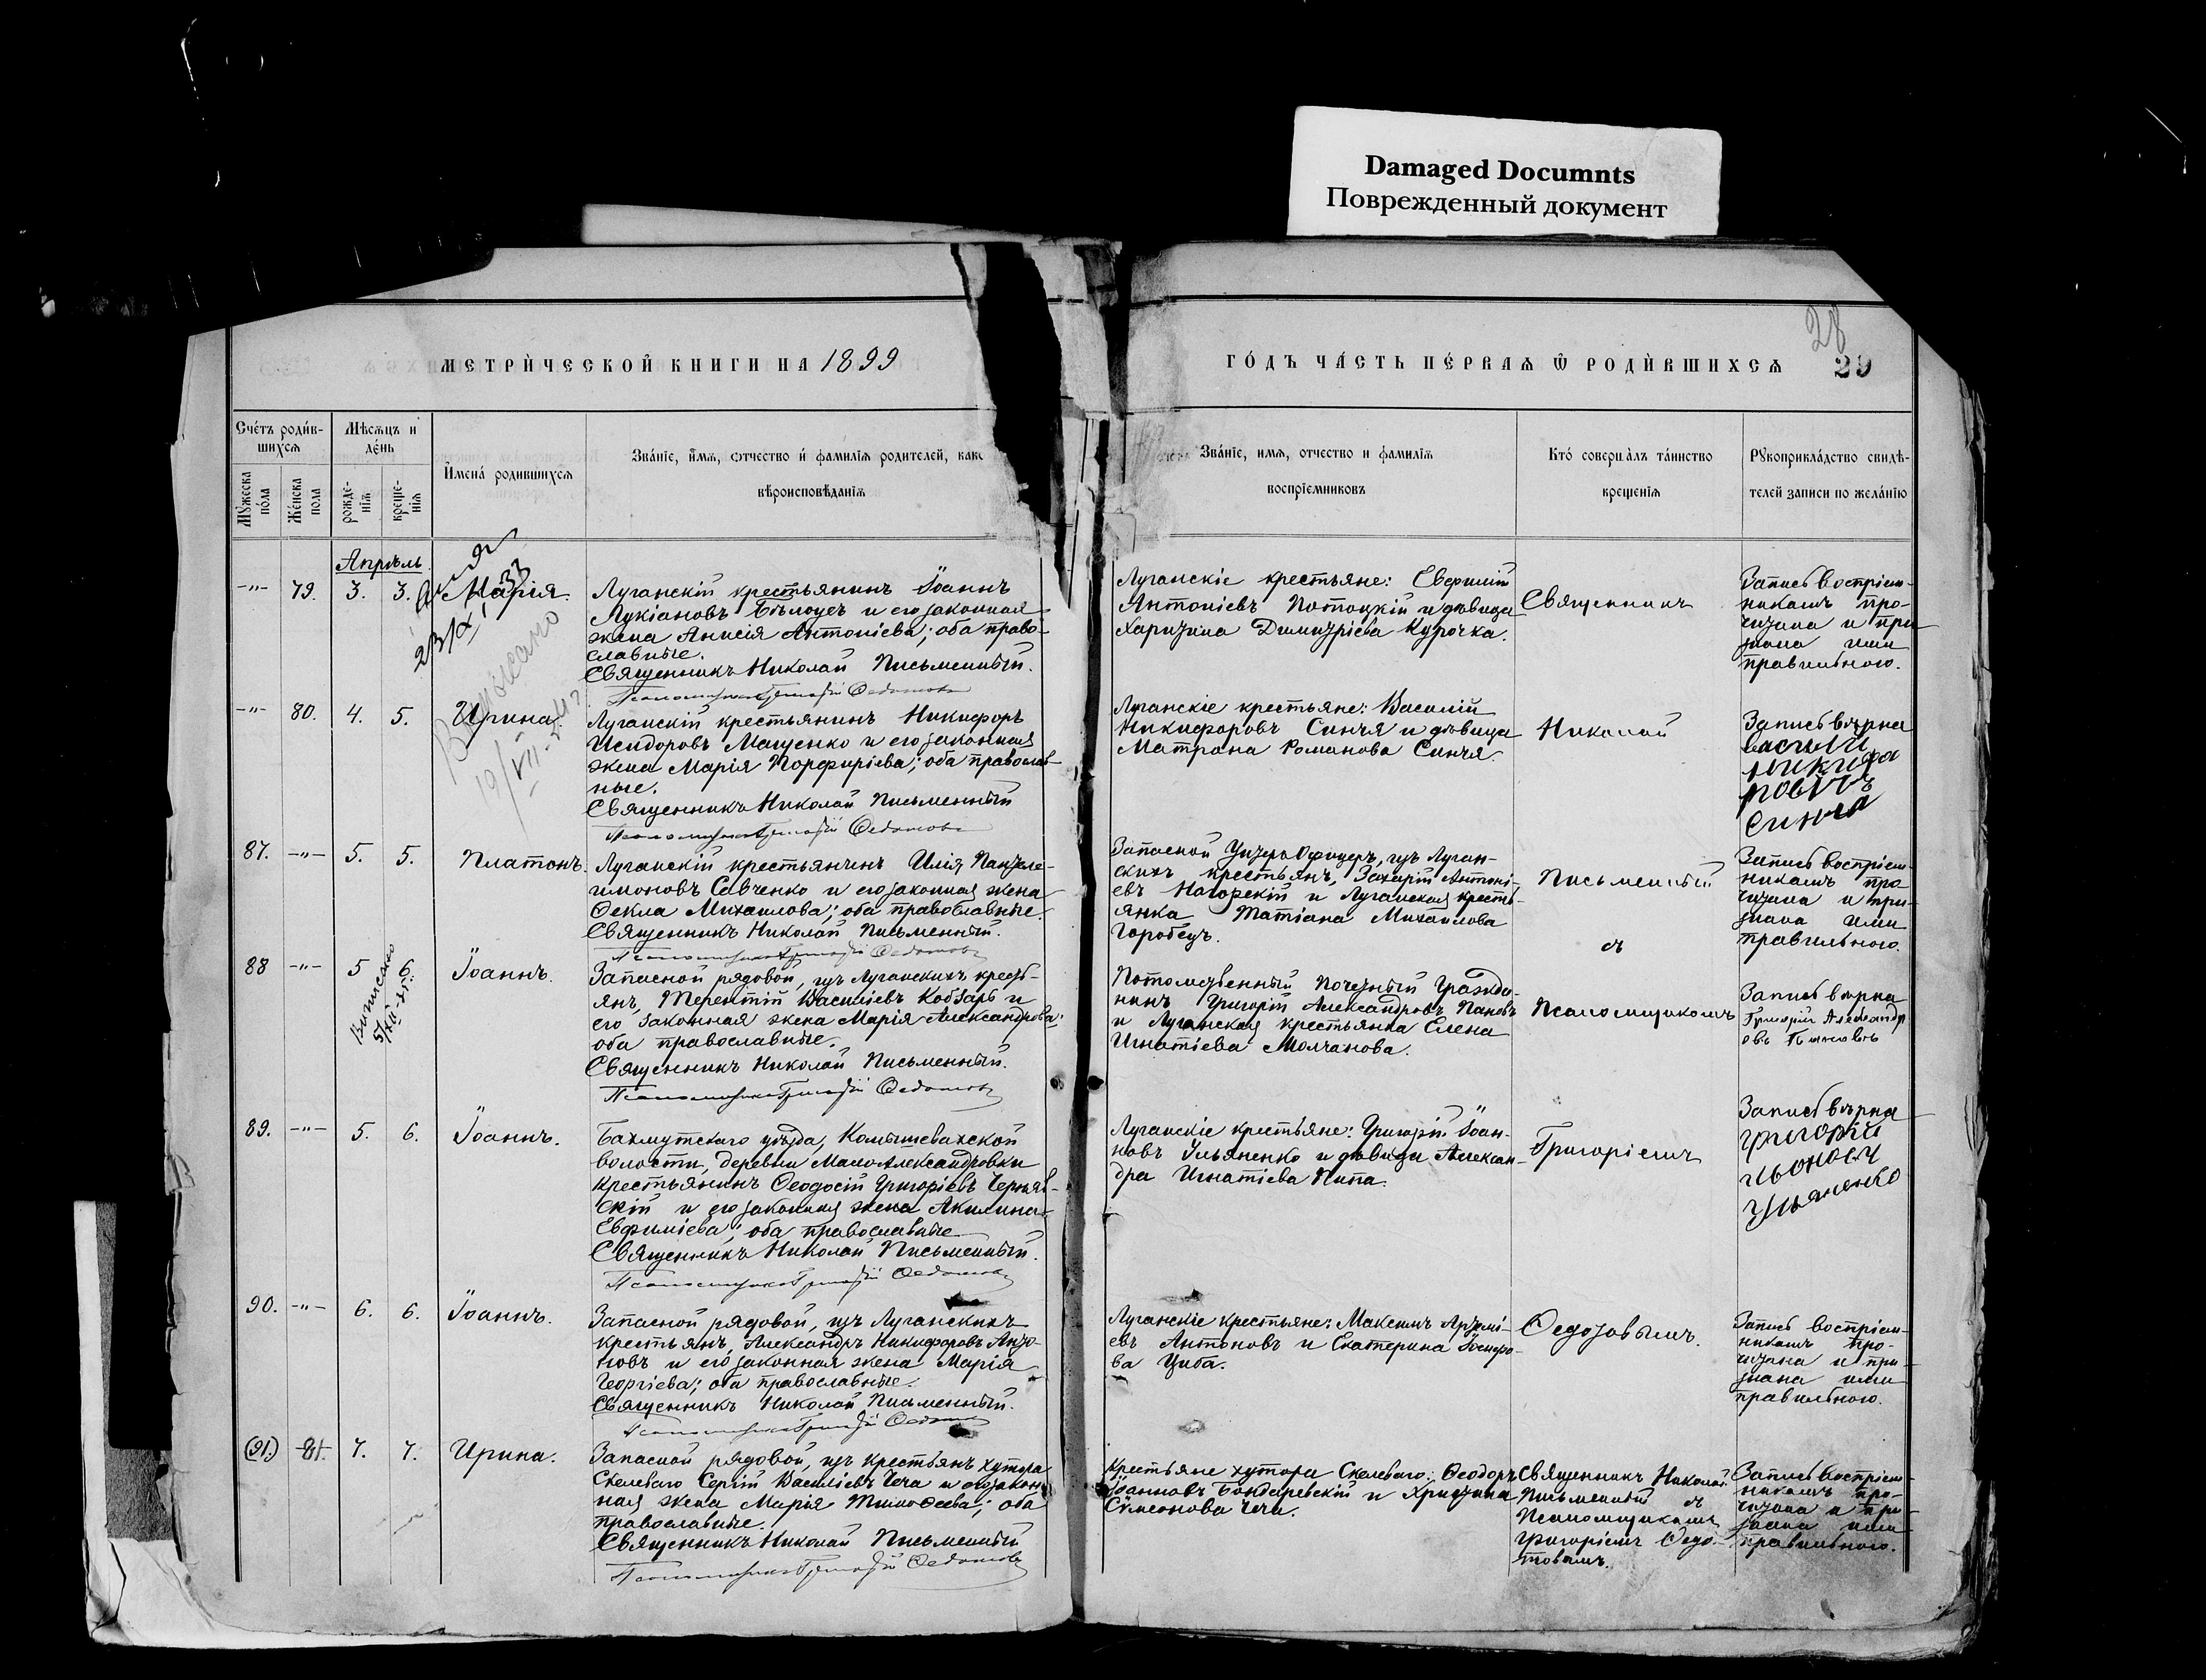 Damaged Documnts
Поврежденный документ
МЕТРИ́ЧЕСКОЙ КНИГИ НА 1899
ГО́ДЪ ЧА́СТЬ ПЕ́РВАѦ Ѡ҆ РОДИ́ВШИХСѦ
28
29
Сче́тъ роди́в-
шихсѧ
Му́жеска по́ла
Же́нска пола
Мѣ́сѧцъ и де́нь
рожде-
нїѧ
креще-
нїѧ
И҆мена̀ родившихсѧ
Зва́нїе, и҆́мѧ, ѻтчество и҆ фамилїѧ родителей, како
вѣроисповѣданїѧ
Зва́нїе, имѧ, отчество и фамилїѧ
воспрїемниковъ
Кто́ соверша́лъ та́инство
крещенїѧ
Рꙋкоприкла́дство свидѣ-
телей записи по жела́нїю
Апрѣль
-"- 79. 3. 3. Марія.
Луганскій крестьянинъ Іоаннъ
Лукіановъ Бѣлоусъ и его законная
жена Анисія Антоніева; оба право-
славные.
Священникъ Николай Письменный.
Псаломщикъ Григорій Ѳедотовъ
Луганскіе крестьяне: Евфимій
Антоніевъ Потоцкій и дѣвица
Харитина Димитріева Курочка.
Священникъ
Запись воспріем-
никамъ про-
читана и при
знана ими
правильною.
-"- 80. 4. 5. Ирина.
Луганскій крестьянинъ Никифоръ
Исидоровъ Мащенко и его законная
жена Марія Порфиріева; оба православ-
ные.
Священникъ Николай Письменный
Псаломщикъ Григорій Ѳедотовъ
Луганскіе крестьяне: Василій
Никифоровъ Синчя и дѣвица
Матрона Романова Синчя.
Николай
Запись вѣрна
Василий
87. -"- 5. 5. Платонъ.
Луганскій крестьянинъ Илія Пантеле-
имоновъ Савченко и его законная жена
Ѳекла Михаилова; оба православные.
Священникъ Николай Письменный.
Псаломщикъ Григорій Ѳедотовъ
Запасной Унтеръ Офицеръ, изъ Луган-
скихъ крестьянъ, Захарій Антоні-
евъ Нагорскій и Луганская кресть-
янка Татіана Михаилова
Горобецъ.
Письменный
съ
Запись воспріем-
никамъ про
читана и при-
знана ими
правильною.
88 -"- 5 6. Іоаннъ.
Выписано
Запасной рядовой, изъ Луганскихъ кресть-
янъ, Терентій Василіевъ Кобзарь и
его законная жена Марія Александрова;
оба православные.
Священникъ Николай Письменный.
Псаломщикъ Григорій Ѳедотовъ
Потомственный Почетный Гражда-
нинъ Григорій Александровъ Пановъ
и Луганская крестьянка Елена
Игнатіева Молчанова.
Псаломщикомъ
Запись вѣрна
Григорій Александр
овъ Пановъ
89. -"- 5. 6. Іоаннъ.
Бахмутскаго уѣзда, Камышевахской
волости, деревни МалоАлександровки
крестьянинъ Ѳеодосій Григоріевъ Черняв-
скій и его законная жена Акилина
Евфиміева; оба православные
Священникъ Николай Письменный.
Псаломщикъ Григорій Ѳедотовъ
Луганскіе крестьяне: Григорій Іоан-
новъ Ульяненко и дѣвица Алексан-
дра Игнатіева Пипа.
Григоріемъ
Запись вѣрна
Григорій
Ульяненко
90. -"- 6. 6. Іоаннъ.
Запасной рядовой, изъ Луганскихъ
крестьянъ, Александръ Никифоровъ Анто-
новъ и его законная жена Марія
Георгіева; оба православные.
Священникъ Николай Письменный.
Псаломщикъ Григорій Ѳедотовъ
Луганскіе крестьяне: Максимъ Артемі-
евъ Антоновъ и Екатерина Іосифо-
ва Циба.
Ѳедотовымъ.
Запись воспріем-
никамъ про-
читана и при-
знана ими
правильною.
(91.) 81. 7. 7. Ирина.
Запасной рядовой, изъ крестьянъ хутора
Скелеваго Сергій Василіевъ Чеча и его закон-
ная жена Марія Тимоѳеева; оба
православные.
Священникъ Николай Письменный
Псаломщикъ Григорій Ѳедотовъ
Крестьяне хутора Скелеваго: Ѳеодоръ
Іоанновъ Бондаревскій и Христина
Симеонова Чеча.
Священникъ Николай
Письменный съ
Псаломщикомъ
Григоріемъ Ѳедо-
товымъ.
Запись воспріем-
никамъ про-
читана и при
знана ими
правильною.